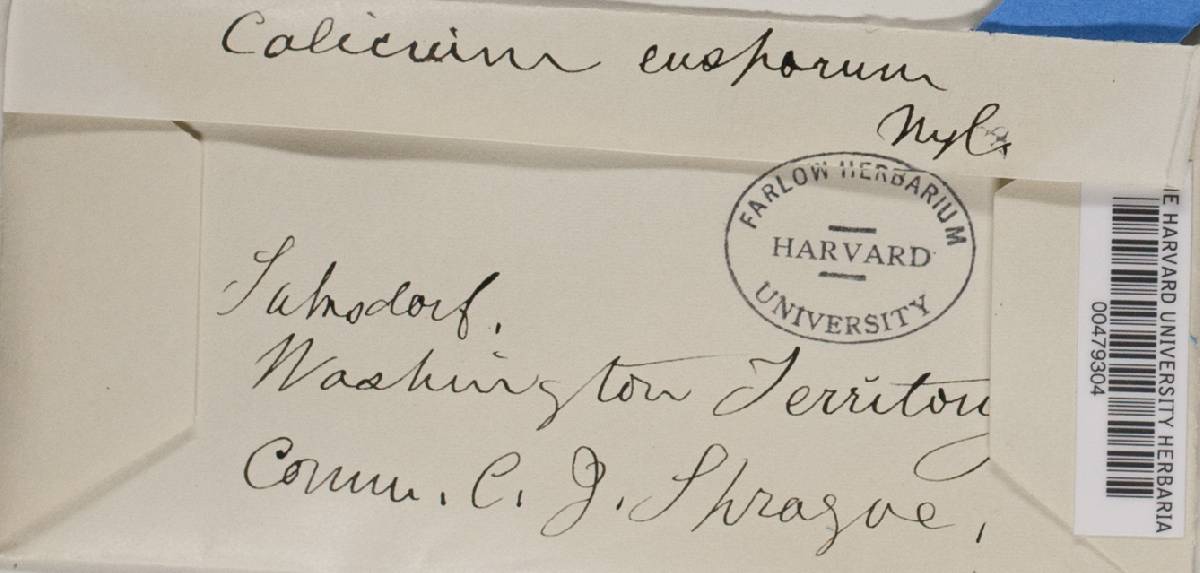 Calicium eusporum
Nyl.
FARLOW HERBARIUM
HARVARD
UNIVERSITY
Suksdorf.
Washington Territory
Comm. C. J. Sprague.
HARVARD UNIVERSITY HERBARIA
00479304